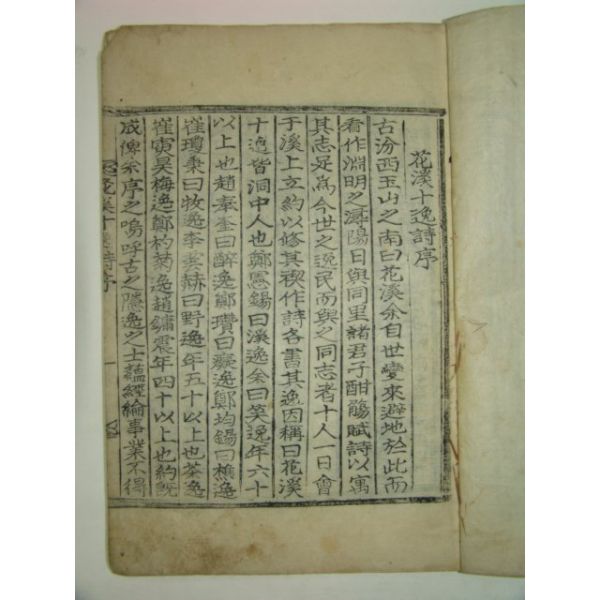 花溪十逸詩序
古汾西玉山之南曰花溪余自世變來避地於此而
看作淵明之潯陽日與同里諸君子酣觴賦詩以寓
其志足爲今世之逸民而與之同志者十人一日會
于溪上立約以修其稧作詩各書其逸因稱曰花溪
十逸皆洞中人也鄭憲錫曰溪逸余曰笑逸年六十
以上也趙奉奎曰醉逸鄭瓚曰癡逸鄭均錫曰樵逸
崔瓊秉曰牧逸李 赫曰野逸年五十以上也茶逸
崔寅昊梅逸鄭杓菊逸趙鏞震年四十以上也約旣
成俾余序之嗚呼古之隱逸之士蘊經綸事業不得
花溪十逸詩序